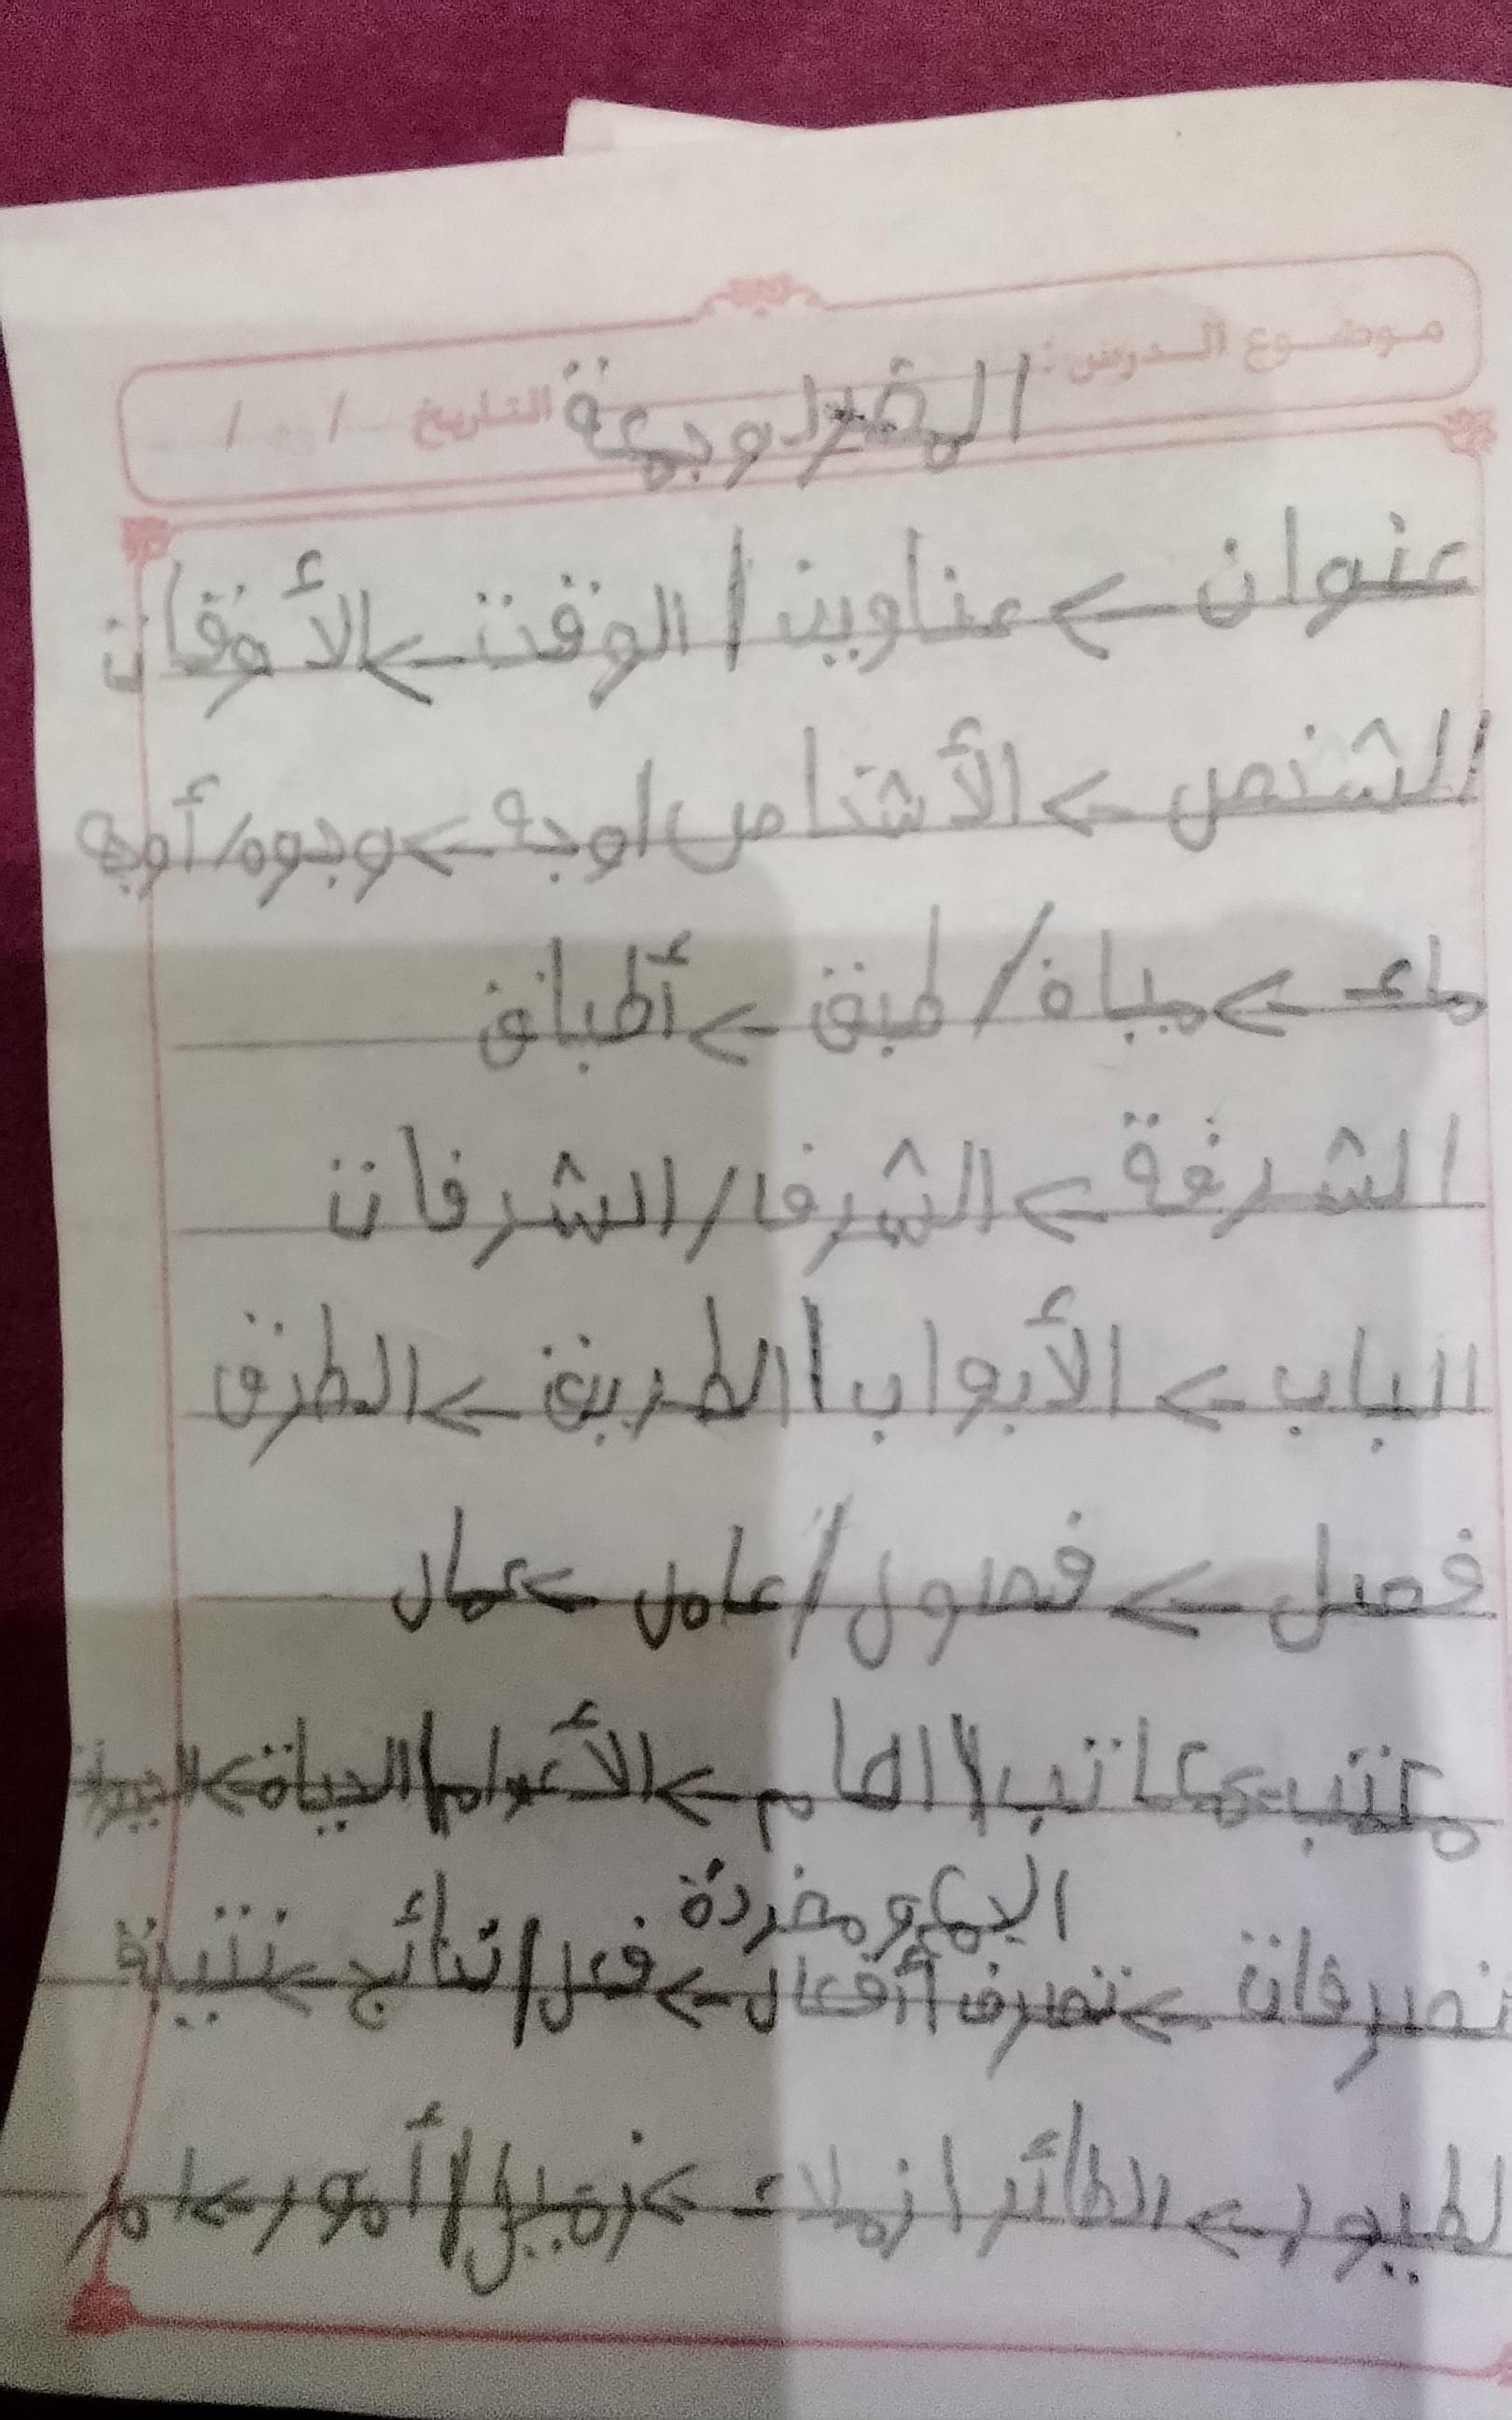 موضوع الدرس: التاريخ / /
المفرد وجمعة
عنوان -> عناوين / الوقت -> الأوقات
الشخص -> الأشخاص / وجه -> وجوه / أوجه
ماء -> مياة / طبق -> أطباق
الشرفة -> الشرفا / الشرفات
الباب -> الأبواب / الطريق -> الطرق
فصل -> فصول / عامل -> عمال
مكتب -> مكاتب / العام -> الأعوام / الحياة ->
الجمع ومفردة
تصرفات -> تصرف / أفعال -> فعل / نتائج -> نتيجة
لطيور -> الطائر / زملاء -> زميل / أمور -> امر